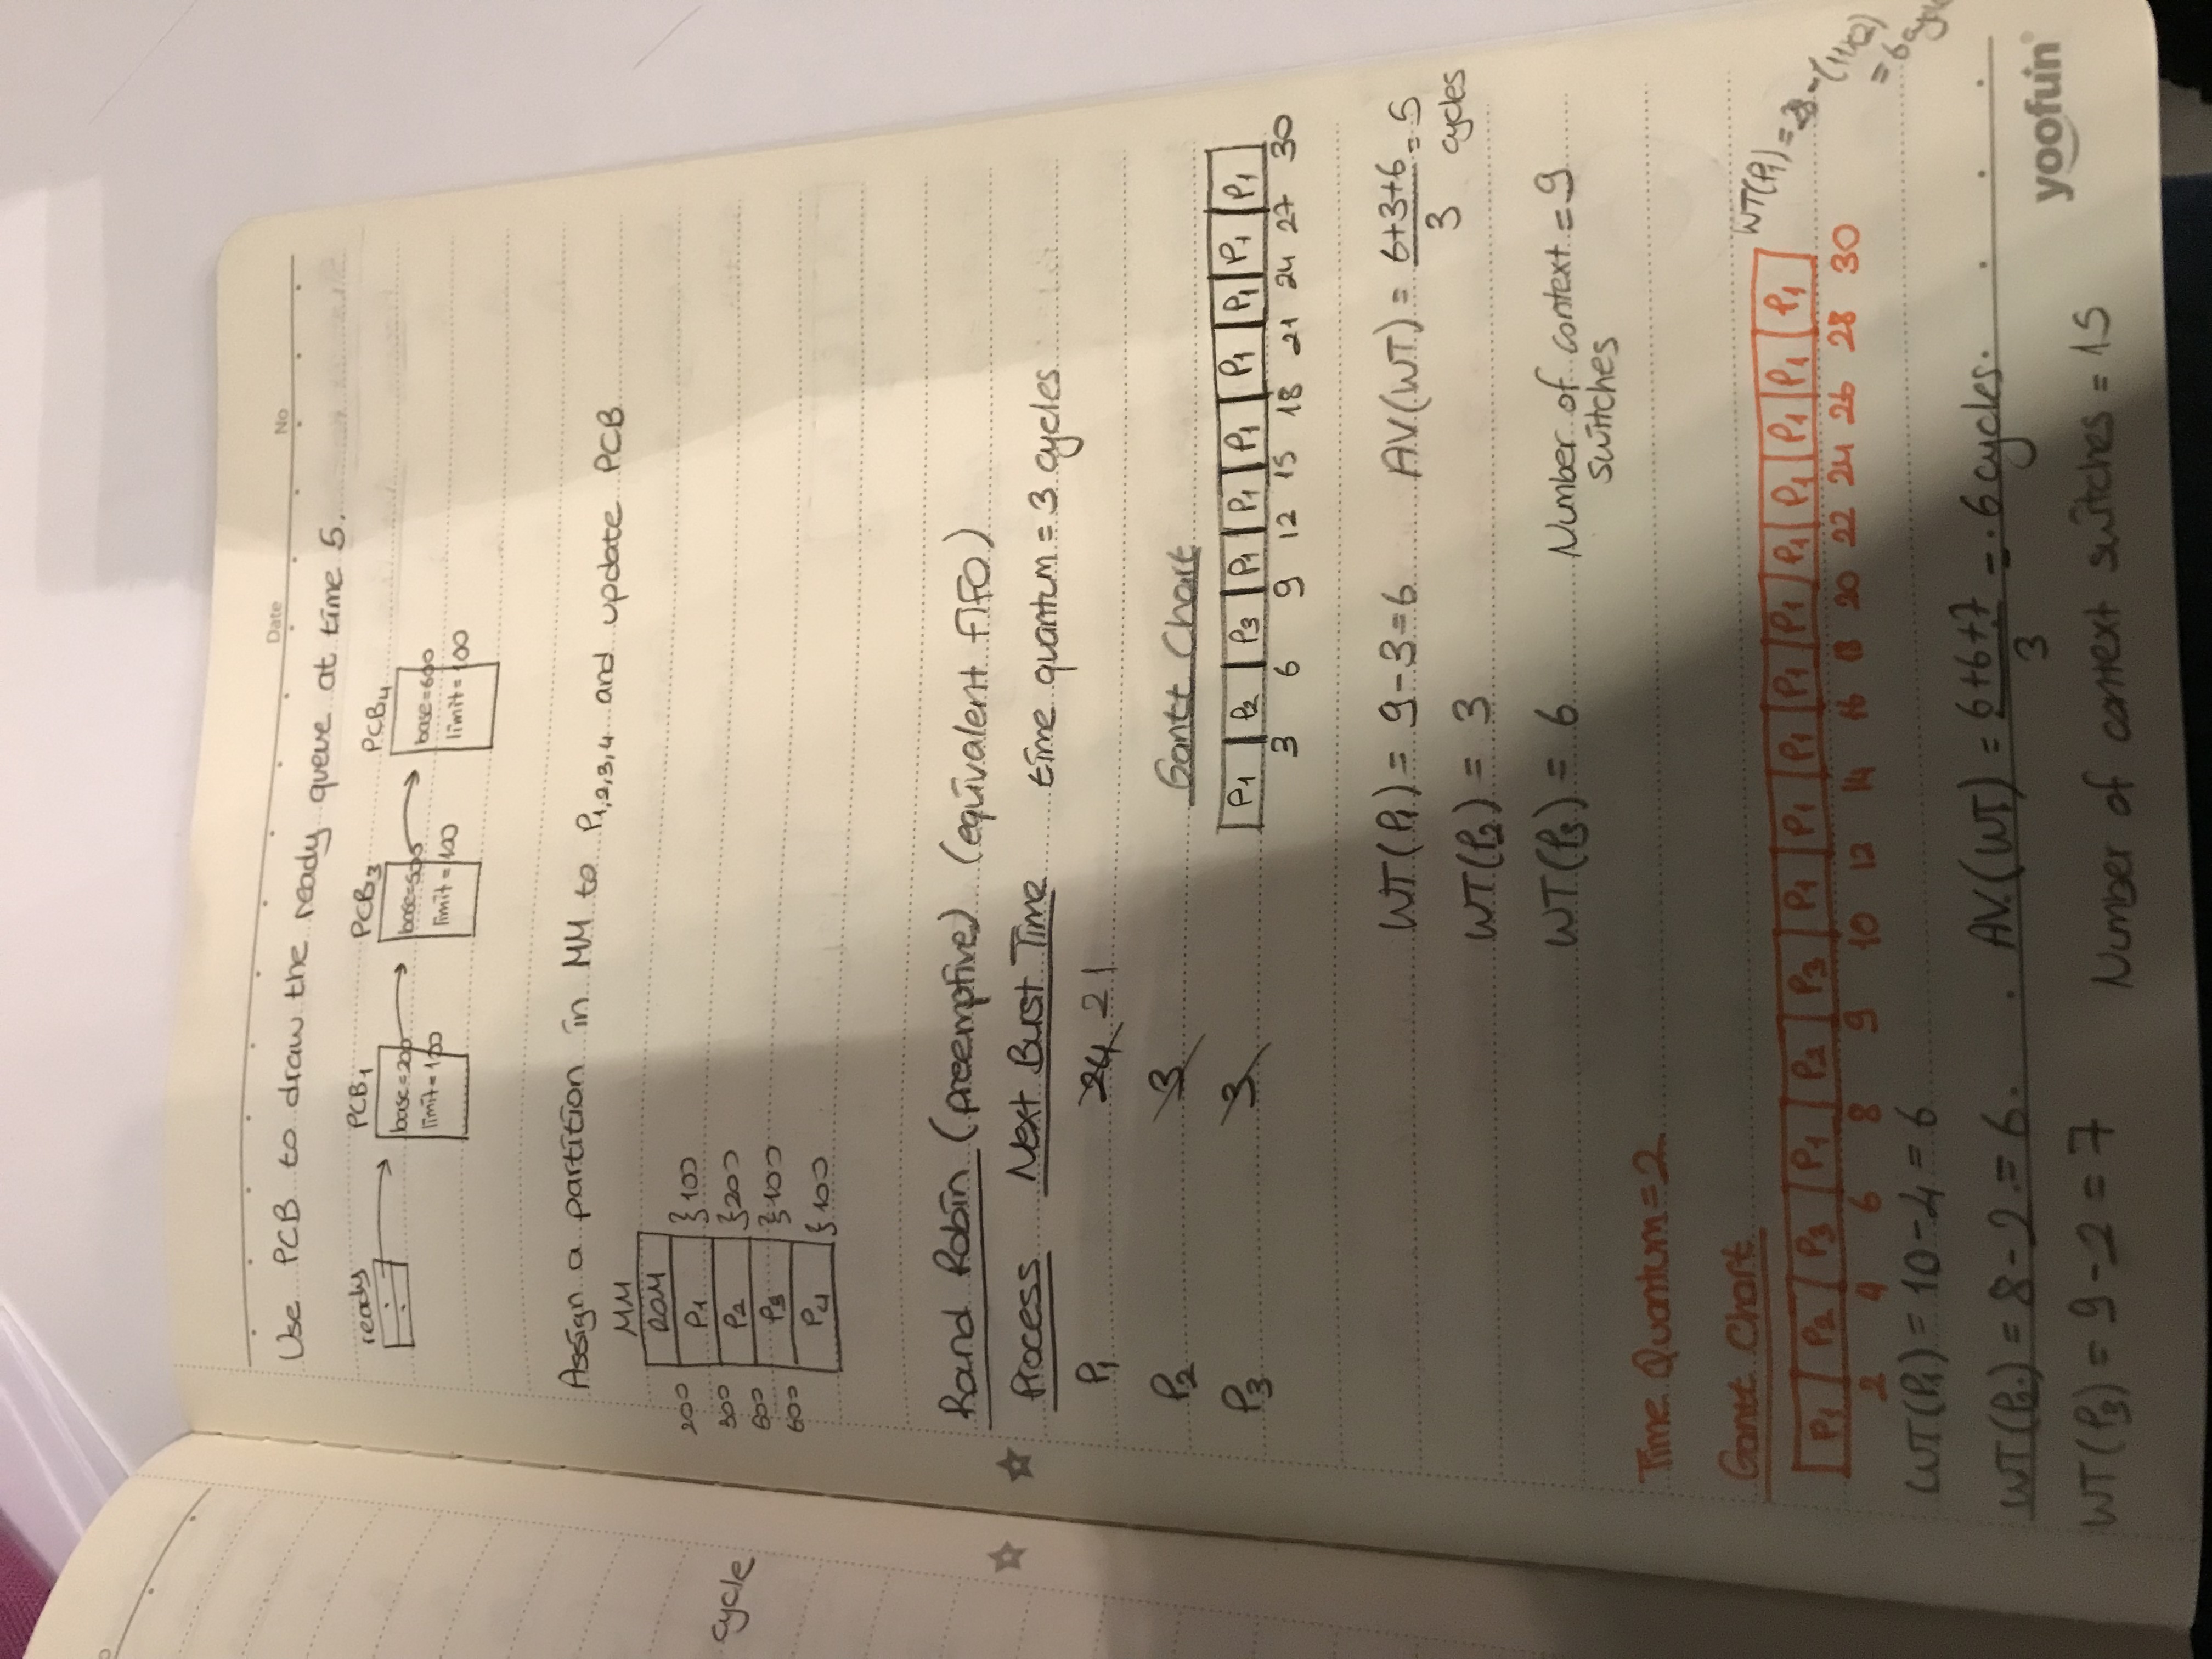 Date No
Use PCB to draw the ready queue at time 5.
ready PCB1 PCB3 PCB4
base=200 base=505 base=600
limit=100 limit=100 limit=100
Assign a partition in MM to P1,2,3,4 and update PCB
MM
ROM
200 P1 }100
300 P2 }200
600 P3 }100
600 P4 }100
cycle
Rand Robin (preemptive) (equivalent FIFO)
Process Next Burst Time time quantum = 3 cycles
P1 24 21
P2 3
Gantt Chart
P3 3
P1 P2 P3 P1 P1 P1 P1 P1 P1 P1
3 6 9 12 15 18 21 24 27 30
WT(P1) = 9-3=6 AV(WT) = 6+3+6/3 = 5 cycles
WT(P2) = 3
WT(P3) = 6 Number of context switches = 9
Time Quantum=2
Gantt Chart
P1 P2 P3 P1 P2 P3 P1 P1 P1 P1 P1 P1 P1 P1 P1 P1
2 4 6 8 9 10 12 14 16 18 20 22 24 26 28 30
WT(P1) = 28-(11x2)
= 6
WT(P1) = 10-4 = 6
WT(P2) = 8-2 = 6 AV.(WT) = 6+6+7/3 = 6 cycles
WT(P3) = 9-2 = 7 Number of context switches = 15
yoofun